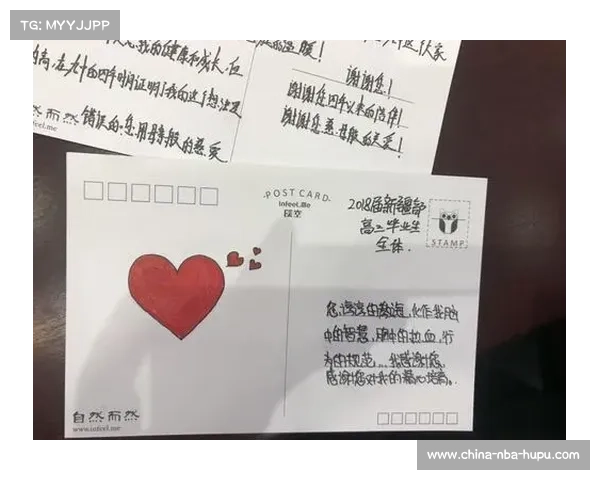 TG: MYYJJPP
我的健康和成长,但
在九十的四年时间证明了我的这个想法是
错误的.您用母亲般的慈爱
自然而然
infeel.me
谢谢您!
谢谢您四年以来的陪伴!
谢谢您慈母般的关爱!
POST CARD
infeel.me
2018届新疆部
高三毕业生
全体.
STAMP
您,谆谆的教诲,化作我脑
中的智慧,胸中的热血,行
为的规范...我感谢您.
感谢您对我的精心培育.
自然而然
www.infeel.me
www.china-nba-hupu.com